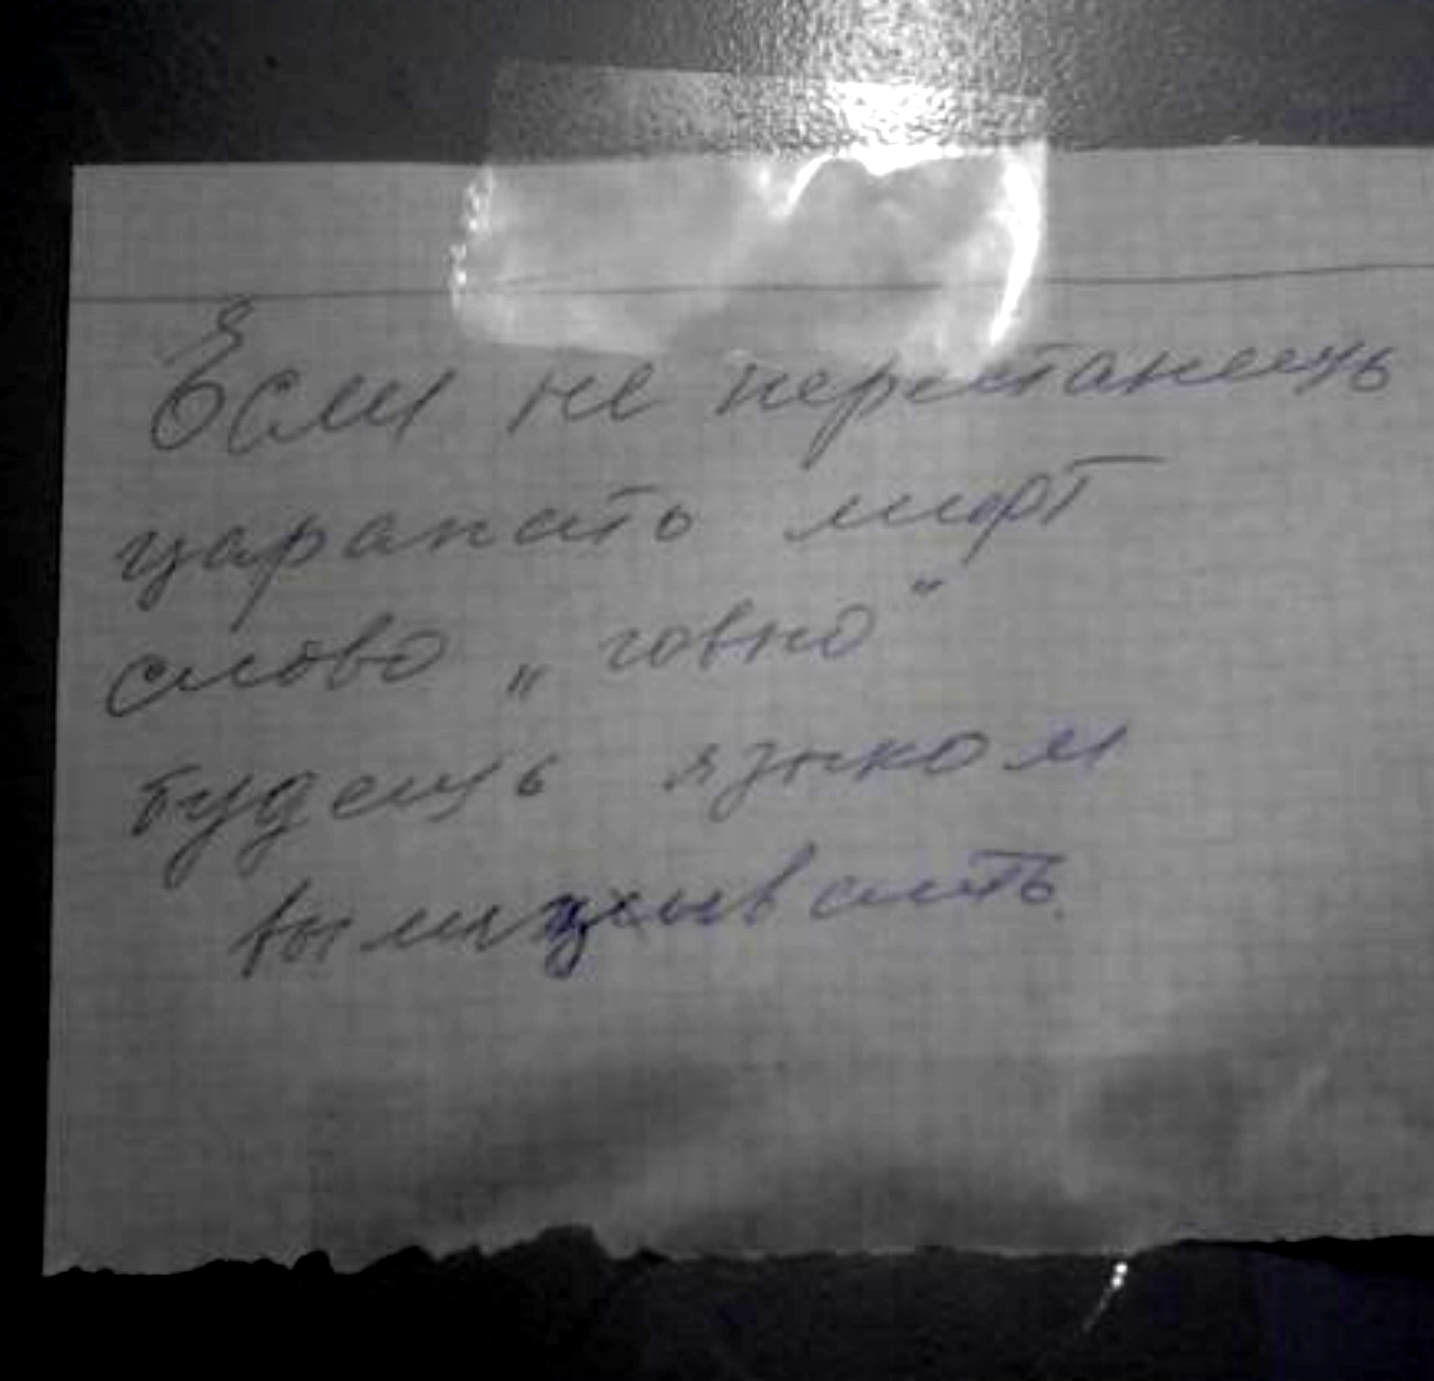 Если не перестанешь
царапать лифт
слово „говно"
будешь языком
вылизывать.